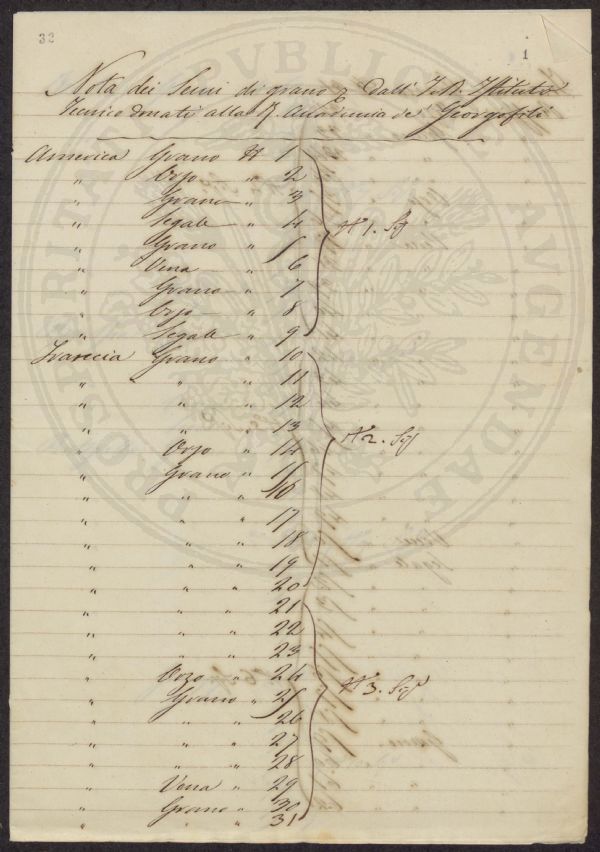 32
1
Nota dei Semi di grano &c. dall' I. R. Istituto
Tecnico donati alla R. Accademia de' Georgofili
America Grano N 1
" Orzo " 2
" Grano " 3
" Segale " 4
" Grano " 5
" Vena " 6
" Grano " 7
" Orzo " 8
" Segale " 9
N 1.
Svezia Grano " 10
" " " 11
" " " 12
" " " 13
" Orzo " 14
" Grano " 15
" " " 16
" " " 17
" " " 18
" " " 19
" " " 20
N 2.
" " " 21
" " " 22
" " " 23
" Orzo " 24
" Grano " 25
" " " 26
" " " 27
" " " 28
" Vena " 29
" Grano " 30
" " " 31
N 3.
PROSPERITATI PVBLICAE AVGENDAE